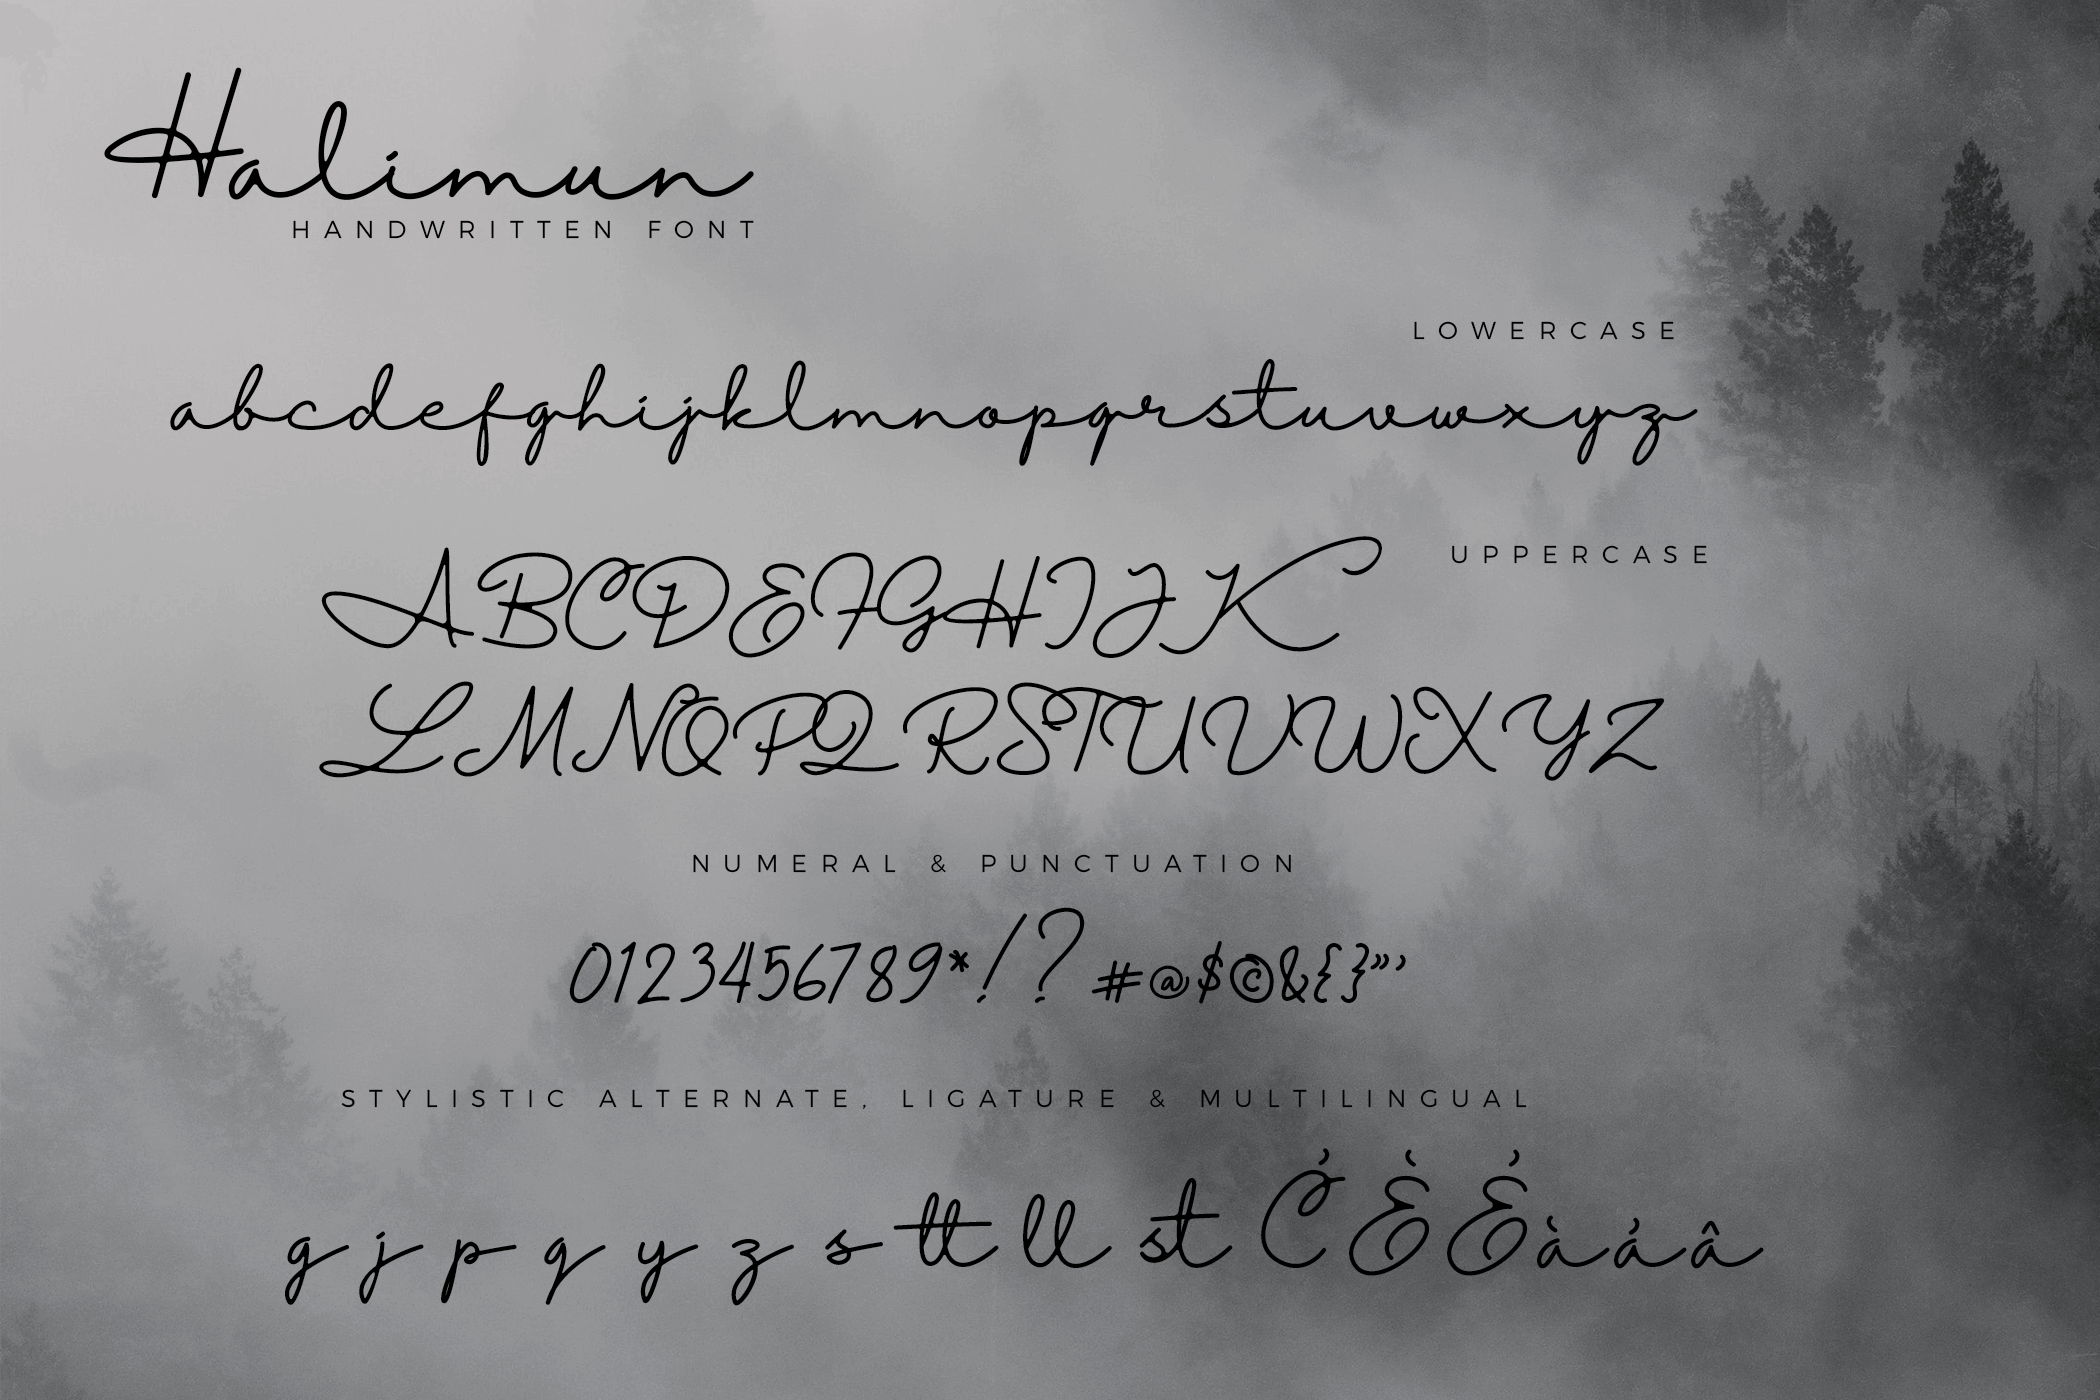 Halimun
HANDWRITTEN FONT
LOWERCASE
abcdefghijklmnopqrstuvwxyz
UPPERCASE
ABCDEFGHIJK
LMNOPQRSTUVWXYZ
NUMERAL & PUNCTUATION
0123456789*!?#@$©&{}”’
STYLISTIC ALTERNATE, LIGATURE & MULTILINGUAL
g j p q y z s tt ll st Ć È É à á â